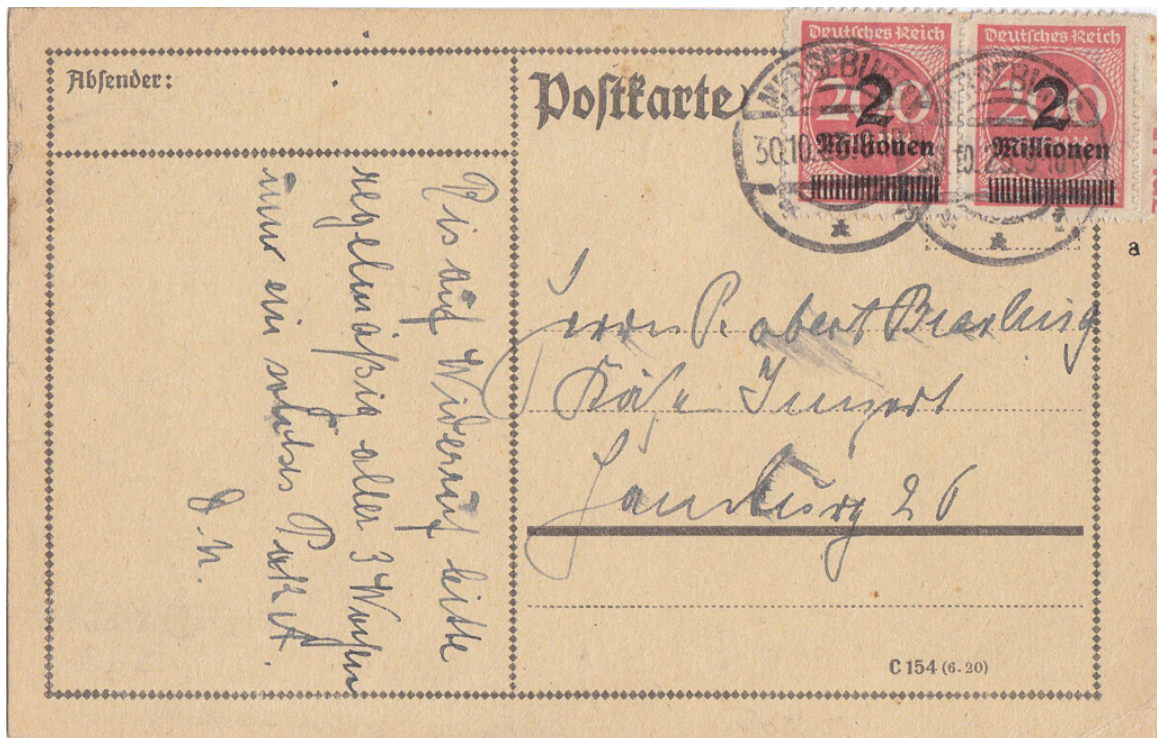 Absender:
Postkarte
Deutsches Reich
200
2
Millionen
Deutsches Reich
200
2
Millionen
MERSEBURG
30.10.23.9-10
Bis auf Widerruf bitte
regelmäßig aller 3 Wochen
nur ein solches Paket.
D. N.
a
Herrn Robert
Käse
Hamburg 26
C 154 (6.20)